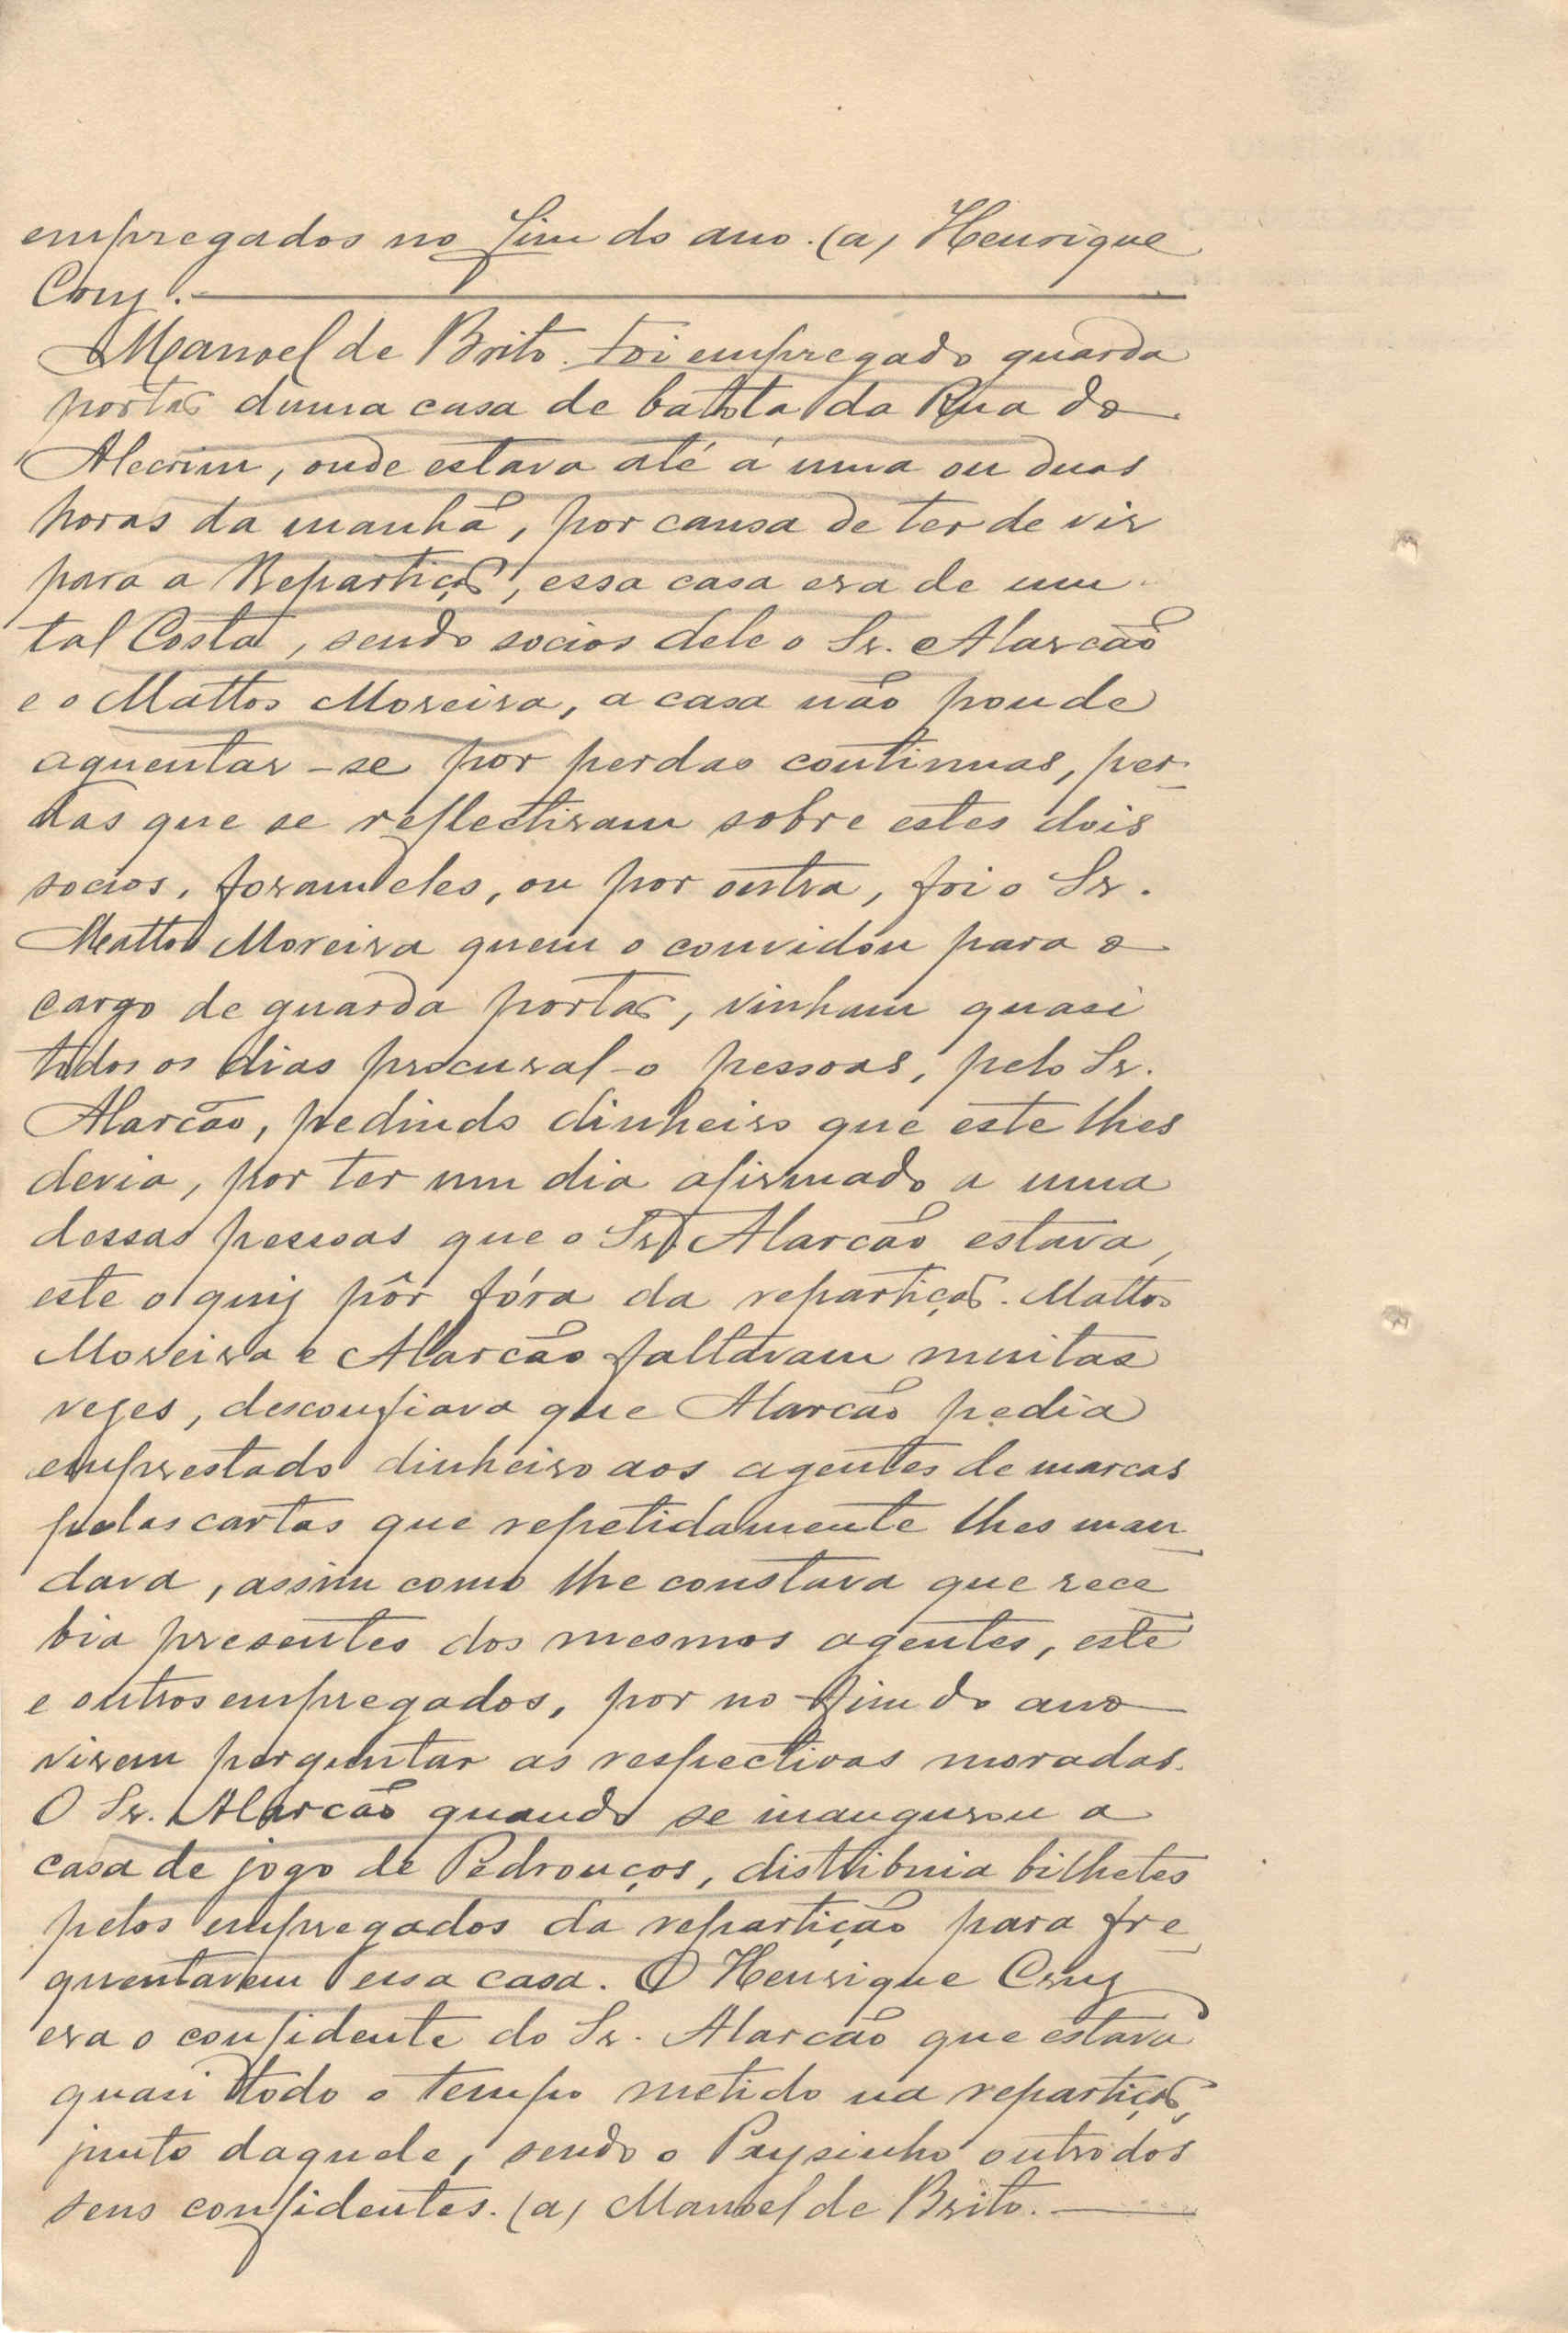 empregados no fim do ano. (a) Henrique
Cruz.
Manoel de Brito. Foi empregado guarda
portão duma casa de batota da Rua do
Alecrim, onde estava até á uma ou duas
horas da manhã, por causa de ter de vir
para a Repartição, essa casa era de um
tal Costa, sendo socios dele o Sr. Alarcão
e o Mattos Moreira, a casa não poude
aguentar-se por perdas continuas, per-
das que se reflectiram sobre estes dois
socios, foram eles, ou por outra, foi o Sr.
Mattos Moreira quem o convidou para o
cargo de guarda portão, vinham quasi
todos os dias procural-o pessoas, pelo Sr.
Alarcão, pedindo dinheiro que este lhes
devia, por ter um dia afirmado a uma
dessas pessoas que o Sr. Alarcão estava,
este o quiz pôr fóra da repartição. Mattos
Moreira e Alarcão faltavam muitas
vezes, desconfiava que Alarcão pedia
emprestado dinheiro aos agentes de marcas
pelas cartas que repetidamente lhes man-
dava, assim como lhe constava que rece
bia presentes dos mesmos agentes, este
e outros empregados, por no fim do ano
virem perguntar as respectivas moradas.
O Sr. Alarcão quando se inaugurou a
casa de jogo de Pedrouços, distribuia bilhetes
pelos empregados da repartição para fre-
quentarem essa casa. O Henrique Cruz
era o confidente do Sr. Alarcão que estava
quasi todo o tempo metido na repartição,
junto daquele, sendo o Paysinho outro dos
seus confidentes. (a) Manoel de Brito.